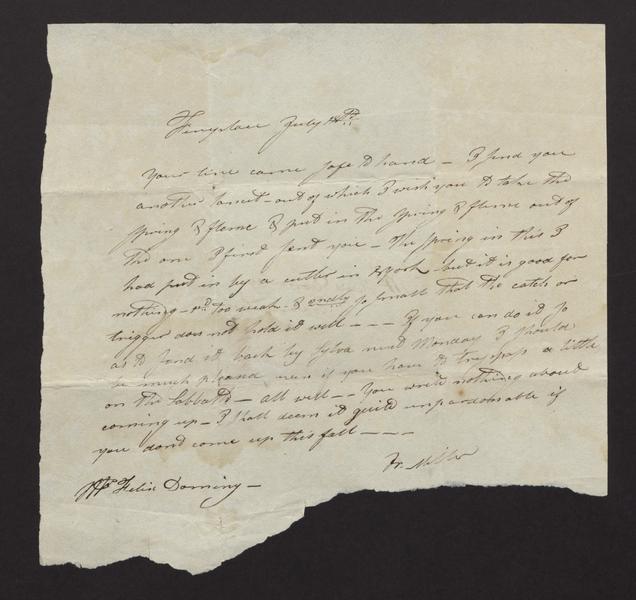 Fireplace July 14th
Your line came safe to hand — I send you
another lancet — out of which I wish you to take the
spring & fleme & put in the spring & fleme out of
the one I first sent you — the spring in this I
had put in by a cutler in York — but it is good for
nothing — too weak & so small that the catch or
trigger does not hold it well — — — If you can do it so
as to send it back by Sylva next Monday I should
be much pleased even if you have to trespass a little
on the Sabbath — all well — — You write nothing about
coming up — I shall deem it quite unpardonable if
you dont come up this fall — — —
Mr Felix Dominy —
N. Miller